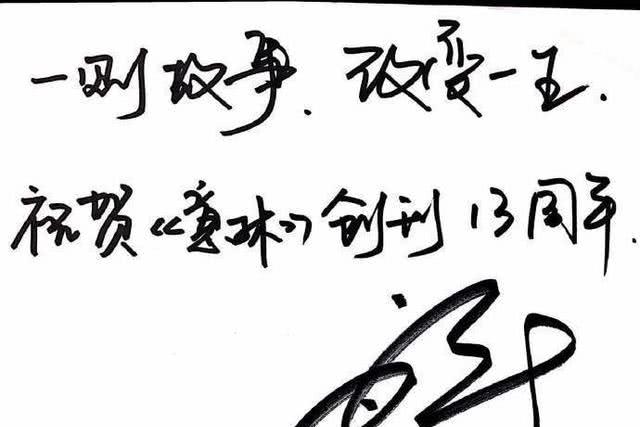 一则故事,改变一生.
祝贺《意林》创刊13周年.